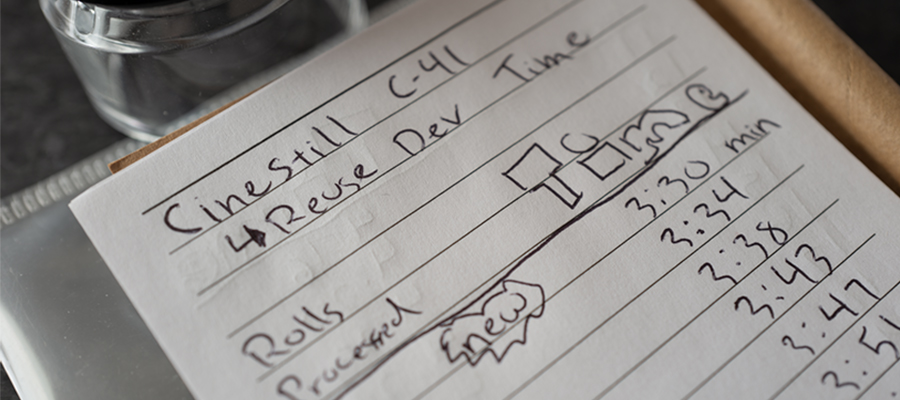 CineStill C-41
↳ Reuse Dev Time
Rolls
Processed
new
3:30 min
3:34
3:38
3:43
3:47
3:51